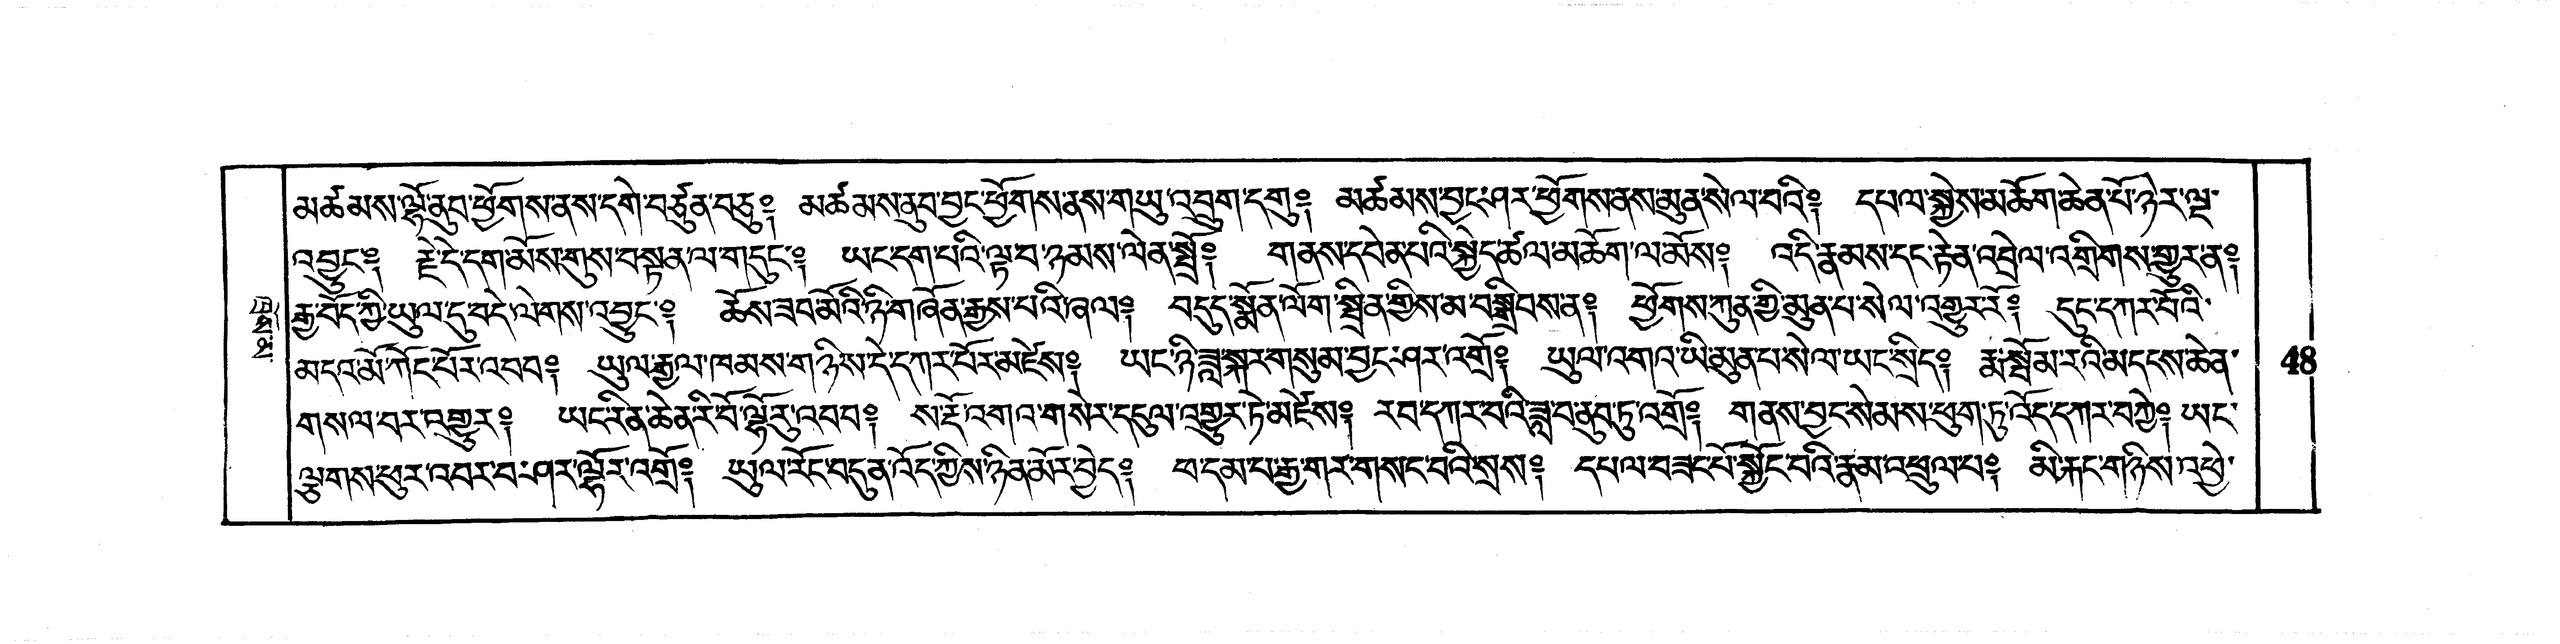 མཚམས་ལྷོ་ནུབ་ཕྱོགས་ནས་དགེ་བཙུན་བརྒྱ༔ མཚམས་ནུབ་བྱང་ཕྱོགས་ནས་གཡུ་འབྲུག་དགུ༔ མཚམས་བྱང་ཤར་ཕྱོགས་ནས་མུན་སེལ་བའི༔ དཔལ་སྐྱེས་མཆོག་ཆེན་པོ་ཉེར་ལྔ་
འབྱུང༔ རྗེ་དེ་དག་མོས་གུས་བསྟན་ལ་གདུང༔ ཡང་དག་པའི་ལྟ་བ་ཉམས་ལེན་སྤྲོ༔ གནས་དབེན་པའི་སྐྱེད་ཚལ་མཆོག་ལ་མོས༔ འདི་རྣམས་དང་རྟེན་འབྲེལ་འགྲིགས་གྱུར་ན༔
རྒྱ་བོད་ཀྱི་ཡུལ་དུ་བདེ་ལེགས་འབྱུང༔ ཆོས་ཟབ་མོའི་ཉི་གཞོན་རྒྱས་པའི་ཞལ༔ བདུད་སྨོན་ལོག་སྤྲིན་གྱིས་མ་བསྒྲིབས་ན༔ ཕྱོགས་ཀུན་གྱི་མུན་པ་སེལ་འགྱུར་རོ༔ དུང་དཀར་པོའི་
མདའ་མོ་ཀོང་པོར་འབབ༔ ཡུལ་རྒྱལ་ཁམས་གཉིས་དེ་དཀར་པོར་མཛེས༔ ཡང་ཉི་ཟླ་སྐར་གསུམ་བྱང་ཤར་འགྲོ༔ ཡུལ་འགའ་ཡི་མུན་པ་སེལ་ཡང་སྲིད༔ རྨ་སྤོམ་རའི་མདངས་ཆེན་
གསལ་བར་འགྱུར༔ ཡང་རིན་ཆེན་རི་བོ་ལྷོ་རུ་འབབ༔ ས་རྡོ་འགའ་གསེར་དངུལ་འགྱུར་ཏེ་མཛེས༔ རབ་དཀར་བའི་ཟླ་བ་ནུབ་ཏུ་འགྲོ༔ གནས་བྱང་སེམས་ཕུག་ཏུ་འོད་དཀར་བཀྱེ༔ ཡང་
ལྕགས་ཕུར་འབར་བ་ཤར་ལྷོར་འགྲོ༔ ཡུལ་རོང་བདུན་འོད་ཀྱིས་ཉིན་མོར་བྱེད༔ ཕ་དམ་པ་རྒྱ་གར་གསང་བའི་སྲས༔ དཔལ་བཟང་པོ་སྐྱོང་བའི་རྣམ་འཕྲུལ་པ༔ མི་རྐང་གཉིས་འཕྱེ་
48